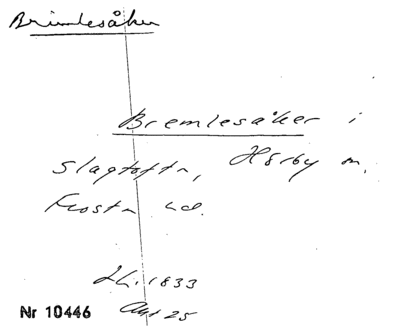 Brimlesåker
Bremlesåker i
Slagtoft n, Hörby sn,
Frosta hd.
Lt. 1833
Nr 10446 Avs 25